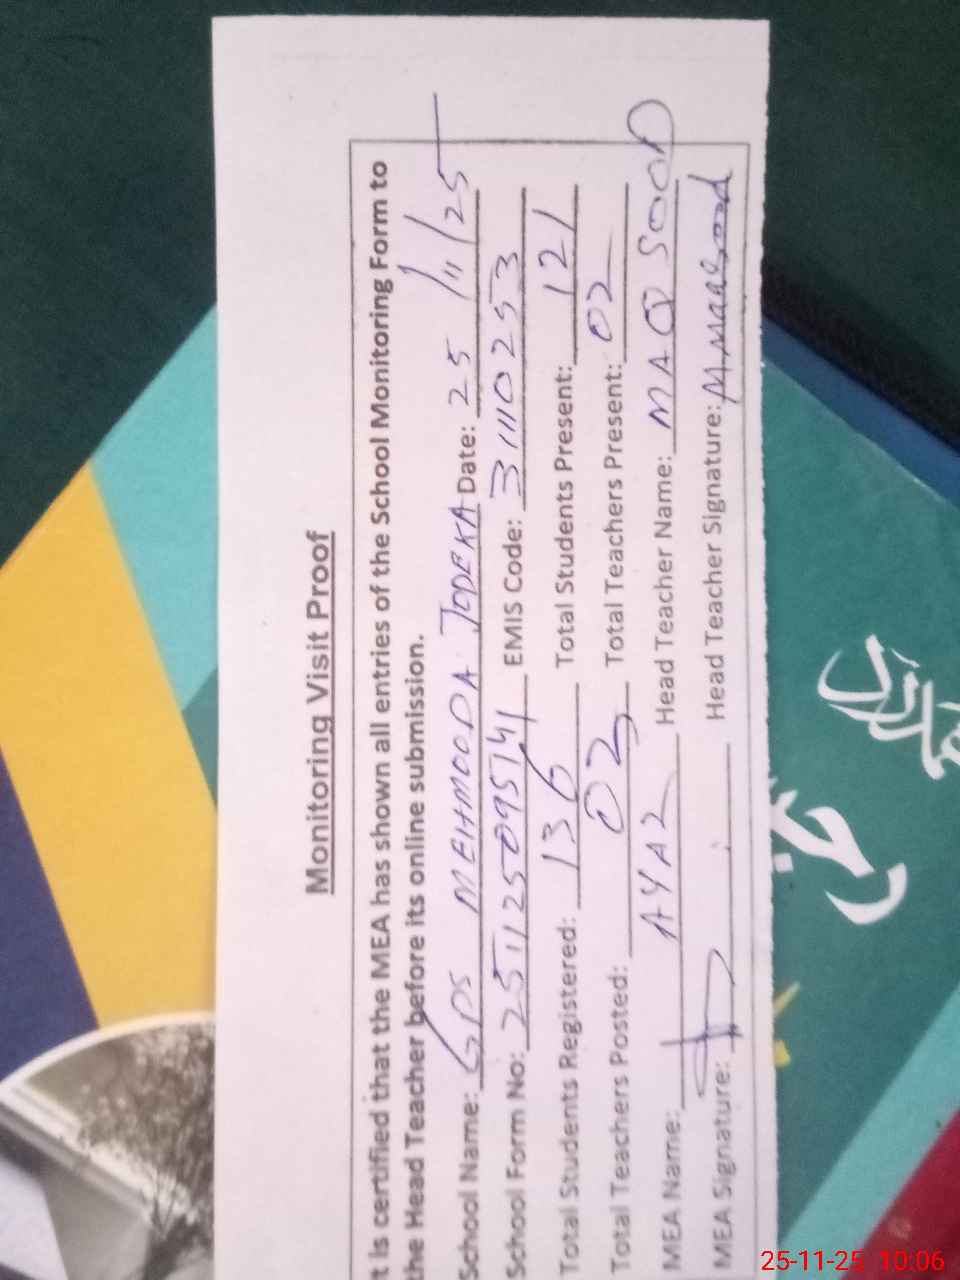 Monitoring Visit Proof
t is certified that the MEA has shown all entries of the School Monitoring Form to
the Head Teacher before its online submission.
School Name: GPS MEHMOODA JODEKA Date: 25/11/25
School Form No: 251125095141 EMIS Code: 31110253
Total Students Registered: 136 Total Students Present: 121
Total Teachers Posted: 02 Total Teachers Present: 02
MEA Name: AYAZ Head Teacher Name: MAQSOOD
MEA Signature: Head Teacher Signature: M.Maqsood
25-11-25 10:06